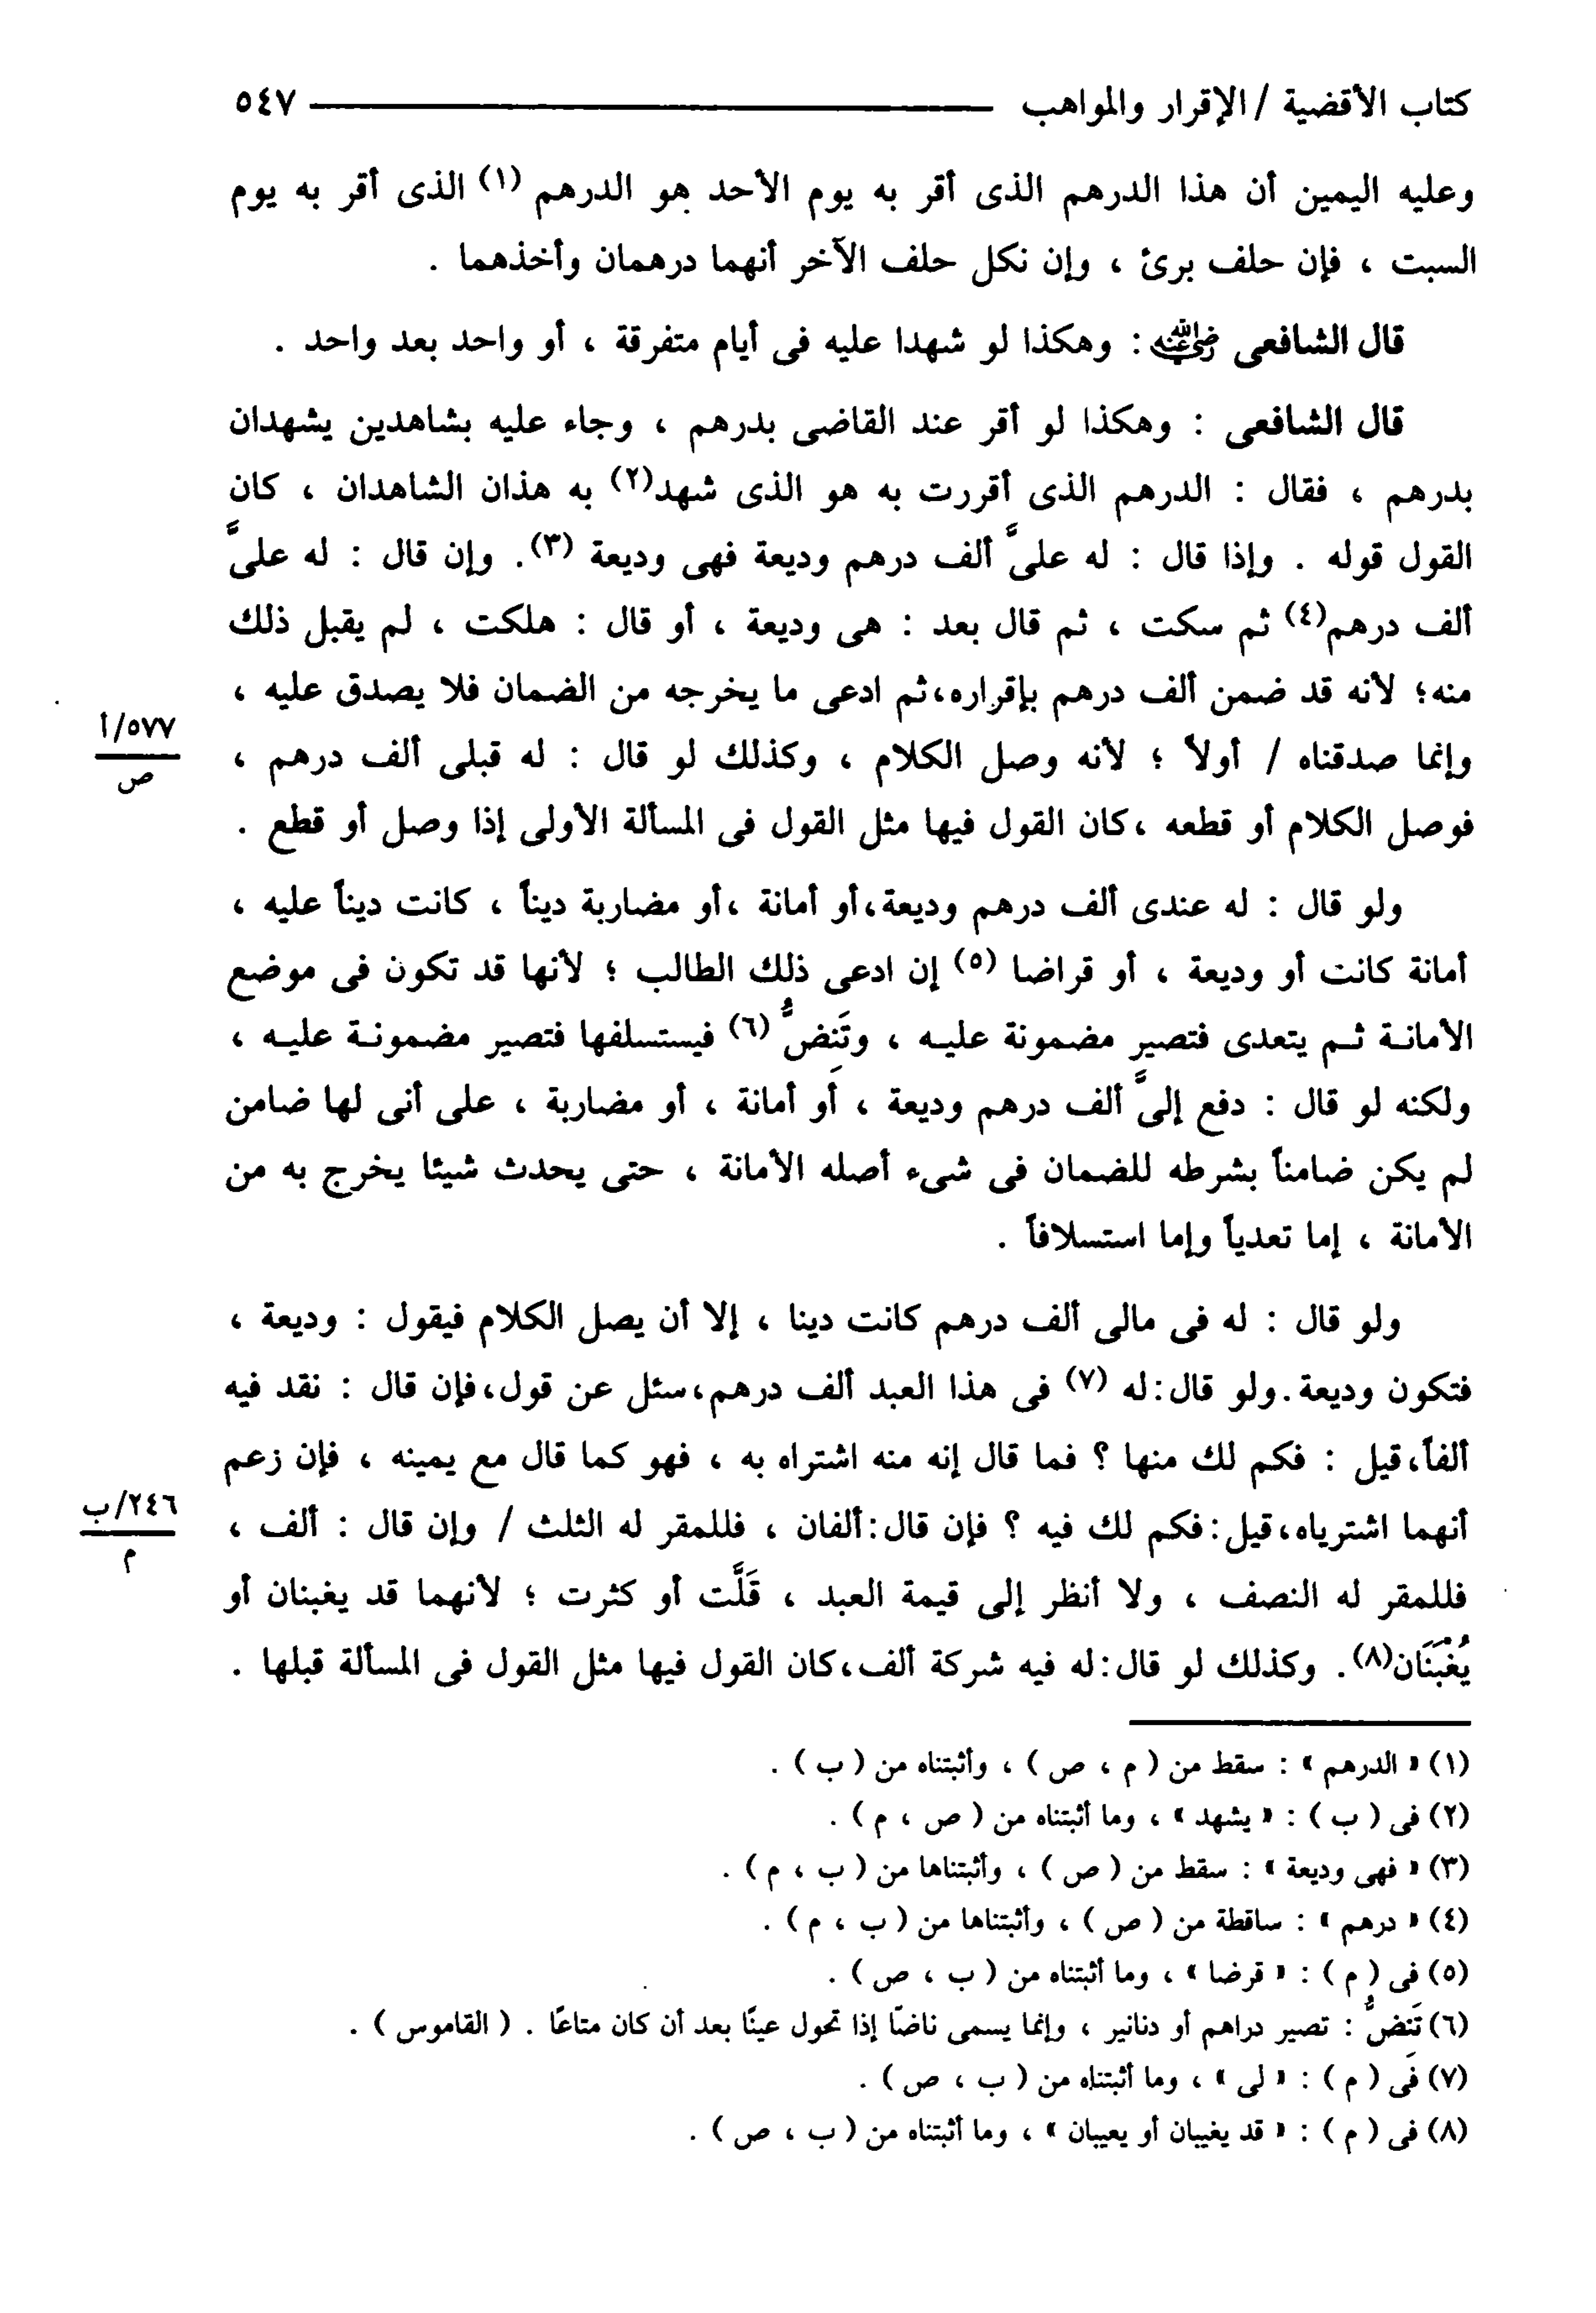 كتاب الأقضية / الإقرار والمواهب ــــــــــ ٥٤٧
وعليه اليمين أن هذا الدرهم الذى أقر به يوم الأحد هو الدرهم (١) الذى أقر به يوم
السبت ، فإن حلف برئ ، وإن نكل حلف الآخر أنهما درهمان وأخذهما .
قال الشافعى رضي الله عنه : وهكذا لو شهدا عليه فى أيام متفرقة ، أو واحد بعد واحد .
قال الشافعى : وهكذا لو أقر عند القاضى بدرهم ، وجاء عليه بشاهدين يشهدان
بدرهم ، فقال : الدرهم الذى أقررت به هو الذى شهد(٢) به هذان الشاهدان ، كان
القول قوله . وإذا قال : له علىَّ ألف درهم وديعة فهى وديعة (٣). وإن قال : له علىَّ
ألف درهم(٤) ثم سكت ، ثم قال بعد : هى وديعة ، أو قال : هلكت ، لم يقبل ذلك
منه؛ لأنه قد ضمن ألف درهم بإقراره،ثم ادعى ما يخرجه من الضمان فلا يصدق عليه ،
وإنما صدقناه / أولاً ؛ لأنه وصل الكلام ، وكذلك لو قال : له قبلى ألف درهم ،
٥٧٧/أ
ص
فوصل الكلام أو قطعه ،كان القول فيها مثل القول فى المسألة الأولى إذا وصل أو قطع .
ولو قال : له عندى ألف درهم وديعة،أو أمانة ،أو مضاربة ديناً ، كانت ديناً عليه ،
أمانة كانت أو وديعة ، أو قراضا (٥) إن ادعى ذلك الطالب ؛ لأنها قد تكون فى موضع
الأمانة ثم يتعدى فتصير مضمونة عليه ، وتَنِضُّ (٦) فيستسلفها فتصير مضمونة عليه ،
ولكنه لو قال : دفع إلىَّ ألف درهم وديعة ، أو أمانة ، أو مضاربة ، على أنى لها ضامن
لم يكن ضامناً بشرطه للضمان فى شىء أصله الأمانة ، حتى يحدث شيئا يخرج به من
الأمانة ، إما تعدياً وإما استسلافاً .
ولو قال : له فى مالى ألف درهم كانت دينا ، إلا أن يصل الكلام فيقول : وديعة ،
فتكون وديعة.ولو قال:له (٧) فى هذا العبد ألف درهم،سئل عن قول،فإن قال : نقد فيه
ألفاً،قيل : فكم لك منها ؟ فما قال إنه منه اشتراه به ، فهو كما قال مع يمينه ، فإن زعم
أنهما اشترياه،قيل:فكم لك فيه ؟ فإن قال:ألفان ، فللمقر له الثلث / وإن قال : ألف ،
٢٤٦/ب
م
فللمقر له النصف ، ولا أنظر إلى قيمة العبد ، قَلَّت أو كثرت ؛ لأنهما قد يغبنان أو
يُغْبَنَان(٨). وكذلك لو قال:له فيه شركة ألف،كان القول فيها مثل القول فى المسألة قبلها .
(١) « الدرهم » : سقط من ( م ، ص ) ، وأثبتناه من ( ب ) .
(٢) فى ( ب ) : « يشهد » ، وما أثبتناه من ( ص ، م ) .
(٣) « فهى وديعة » : سقط من ( ص ) ، وأثبتناها من ( ب ، م ) .
(٤) « درهم » : ساقطة من ( ص ) ، وأثبتناها من ( ب ، م ) .
(٥) فى ( م ) : « قرضا » ، وما أثبتناه من ( ب ، ص ) .
(٦) تَنِضُّ : تصير دراهم أو دنانير ، وإنما يسمى ناضّا إذا تحول عينًا بعد أن كان متاعًا . ( القاموس ) .
(٧) فى ( م ) : « لى » ، وما أثبتناه من ( ب ، ص ) .
(٨) فى ( م ) : « قد يغيبان أو يعيبان » ، وما أثبتناه من ( ب ، ص ) .